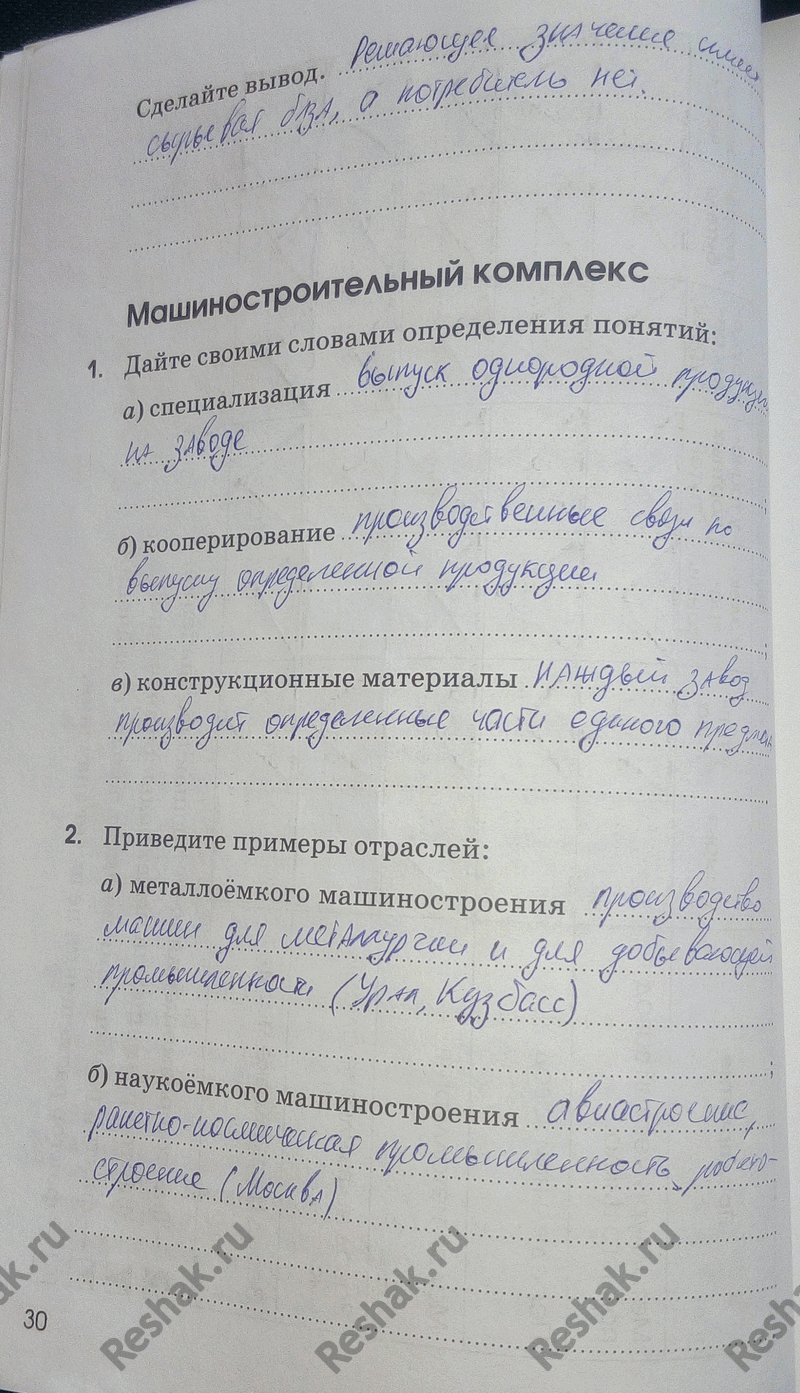 Сделайте вывод. Решающее значение имеет
сырьевая база, а потребитель нет.
Машиностроительный комплекс
1. Дайте своими словами определения понятий:
а) специализация выпуск однородной продукции
на заводе
;
б) кооперирование производственные связи по
выпуску определенной продукции
;
в) конструкционные материалы каждый завод
производит определенные части единого предмета
2. Приведите примеры отраслей:
а) металлоёмкого машиностроения производство
машин для металлургии и для добывающей
промышленности (Урал, Кузбасс)
;
б) наукоёмкого машиностроения авиастроение,
ракетно-космическая промышленность, робото-
строение (Москва)
30
Reshak.ru
Reshak.ru
Reshak.ru